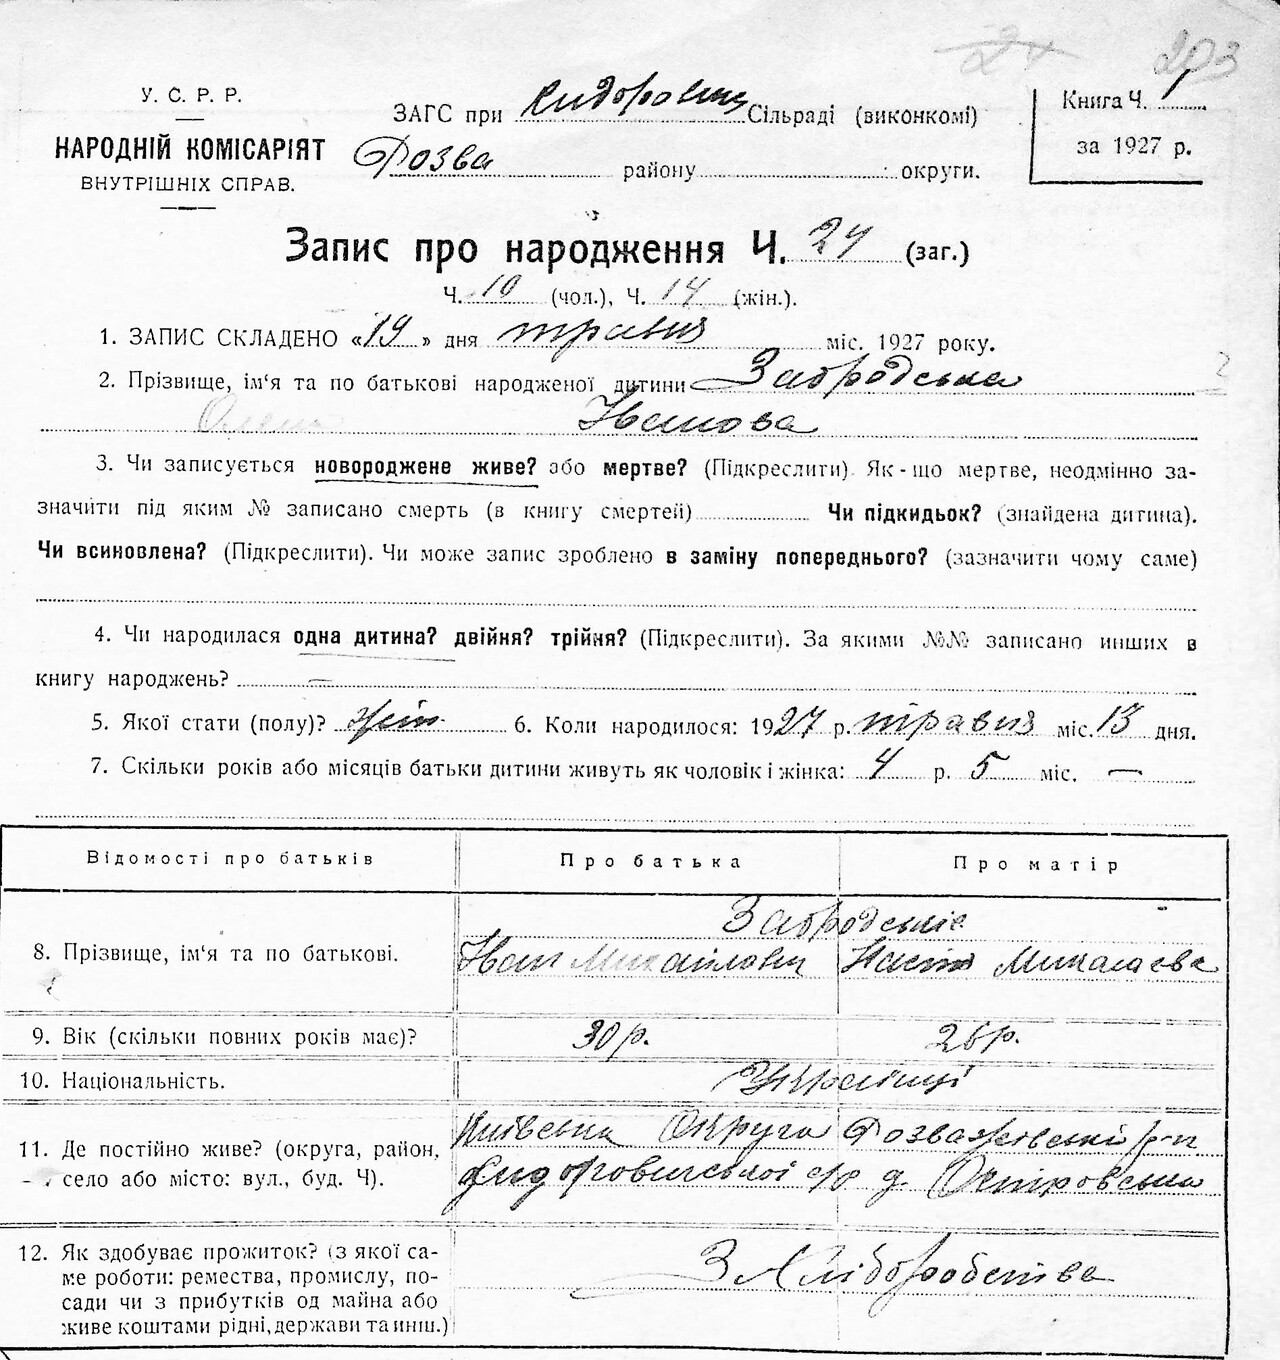 24 203
У. С. Р. Р.
НАРОДНІЙ КОМІСАРІЯТ
ВНУТРІШНІХ СПРАВ.
ЗАГС при Сидорович Сільраді (виконкомі)
Розва району округи.
Книга Ч. 1
за 1927 р.
Запис про народження Ч. 24 (заг.)
Ч. 10 (чол.), Ч. 14 (жін.).
1. ЗАПИС СКЛАДЕНО «19» дня травня міс. 1927 року.
2. Прізвище, ім'я та по батькові народженої дитини Забродська
Олена Іванова
3. Чи записується новороджене живе? або мертве? (Підкреслити). Як-що мертве, неодмінно за-
значити під яким № записано смерть (в книгу смертей) Чи підкидьок? (знайдена дитина).
Чи всиновлена? (Підкреслити). Чи може запис зроблено в заміну попереднього? (зазначити чому саме)
4. Чи народилася одна дитина? двійня? трійня? (Підкреслити). За якими №№ записано инших в
книгу народжень? —
5. Якої стати (полу)? жін. 6. Коли народилося: 1927 р. травня міс. 13 дня.
7. Скільки років або місяців батьки дитини живуть як чоловік і жінка: 4 р. 5 міс. —
Відомості про батьків Про батька Про матір
Забродські
8. Прізвище, ім'я та по батькові. Іван Михайлович Настя Миколаєва
9. Вік (скільки повних років має)? 30 р. 26 р.
10. Національність. Українці
11. Де постійно живе? (округа, район, Київська Округа Розважівський р-н
село або місто: вул., буд. Ч). Сидоровицької с/р д. Островська
12. Як здобуває прожиток? (з якої са- З Хліборобства
ме роботи: ремества, промислу, по-
сади чи з прибутків од майна або
живе коштами рідні, держави та инш.)